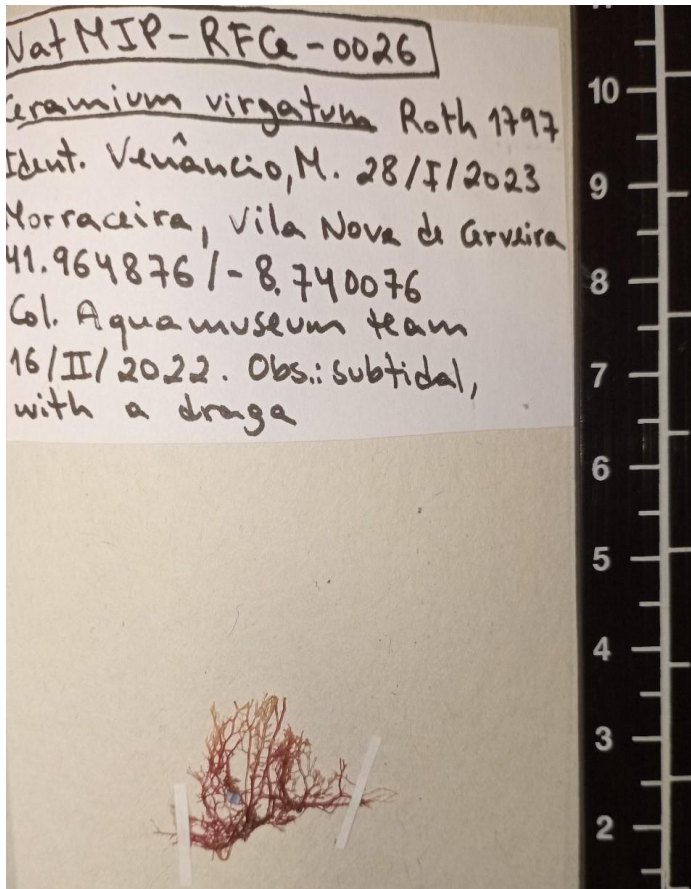 NatMIP-RFCe-0026
Ceramium virgatum Roth 1797
Ident. Venâncio, M. 28/I/2023
Morraceira, Vila Nova de Cerveira
41.964876/-8.740076
Col. Aquamuseum team
16/II/2022. Obs.: subtidal,
with a draga
10
9
8
7
6
5
4
3
2